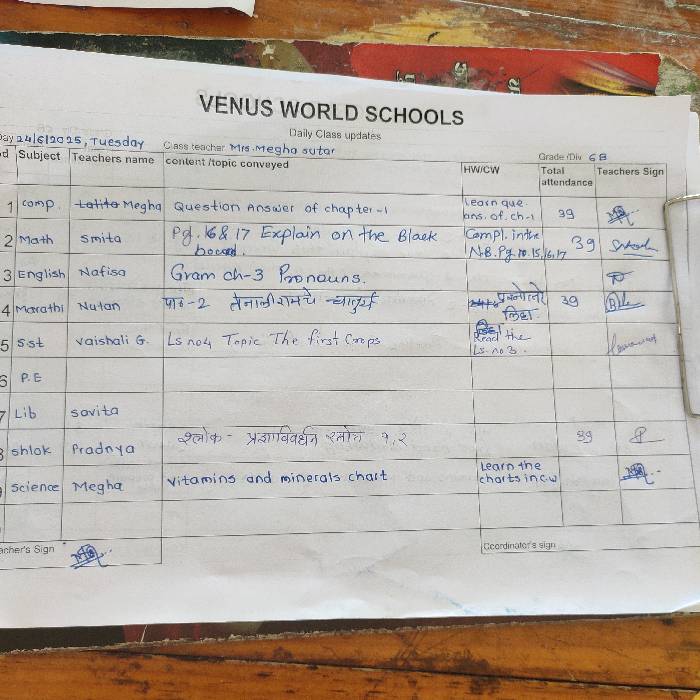 VENUS WORLD SCHOOLS
Daily Class updates
ay 24/6/2025, Tuesday Class teacher Mrs. Megha sutar Grade /Div 6B
d Subject Teachers name content /topic conveyed HW/CW Total attendance Teachers Sign
1 comp. Megha Question Answer of chapter-1 Learn que. ans. of ch-1 39
2 Math Smita Pg. 16 & 17 Explain on the Black board. Compl. in the N.B. Pg. no. 15, 16, 17 39
3 English Nafisa Gram ch-3 Pronouns.
4 Marathi Nutan पाठ-2 तेनालीरामचे चातुर्य प्रश्नोत्तरे लिहा. 39
5 S.st vaishali G. Ls no4 Topic The first Crops Read the Ls. no 3.
6 P.E
7 Lib savita
shlok Pradnya श्लोक - प्रज्ञाविवर्धन स्तोत्र १,२ 39
Science Megha vitamins and minerals chart Learn the charts in C.W
acher's Sign Coordinator's sign